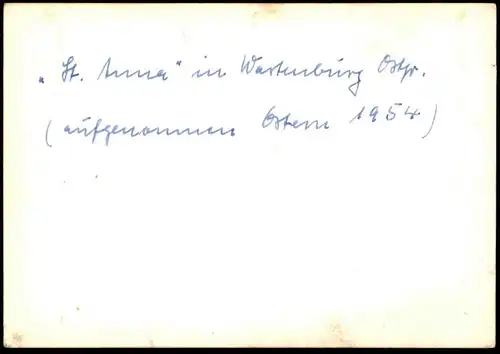 „St. Anna“ in Wartenburg Ostpr.
(aufgenommen Ostern 1954)